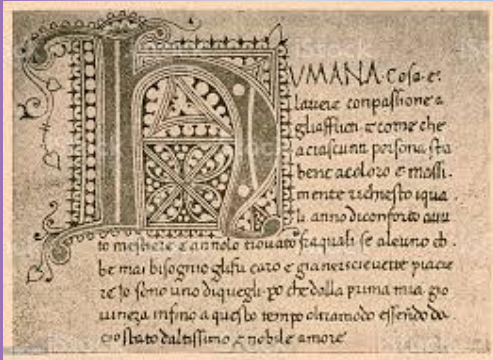 HVMANA· Cosa· e·
lauere conpassione a
gliafflicti· e come che
a ciascuna persona stia
bene a coloro e massi-
mente richiesto iqua·
li anno diconforto auu
to mestiere e annolo trouato fraquali se alcuno eb·
be mai bisognio glifu caro e gianericieuette piacie
re io sono uno diquegli· po che dalla prima mia gio
uineza infino a questo tempo oltramodo essendo da·
cio stato daltissimo e nobile amore
iStock